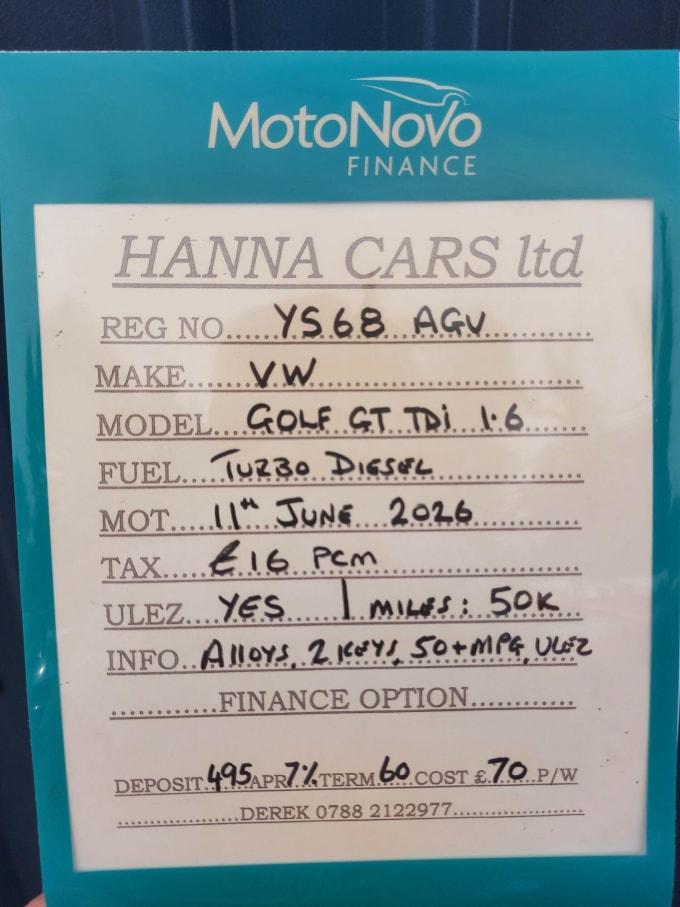 MotoNovo
FINANCE
HANNA CARS ltd
REG NO.....YS68 AGV
MAKE......VW
MODEL...GOLF GT TDi 1.6
FUEL....TURBO DIESEL
MOT....11th JUNE 2026
TAX.....£16 PCM
ULEZ...YES | MILES: 50K
INFO..Alloys, 2 KEYS, 50+MPG, ULEZ
............FINANCE OPTION............
DEPOSIT.495 APR 7% TERM 60 COST £.70 P/W
................DEREK 0788 2122977................